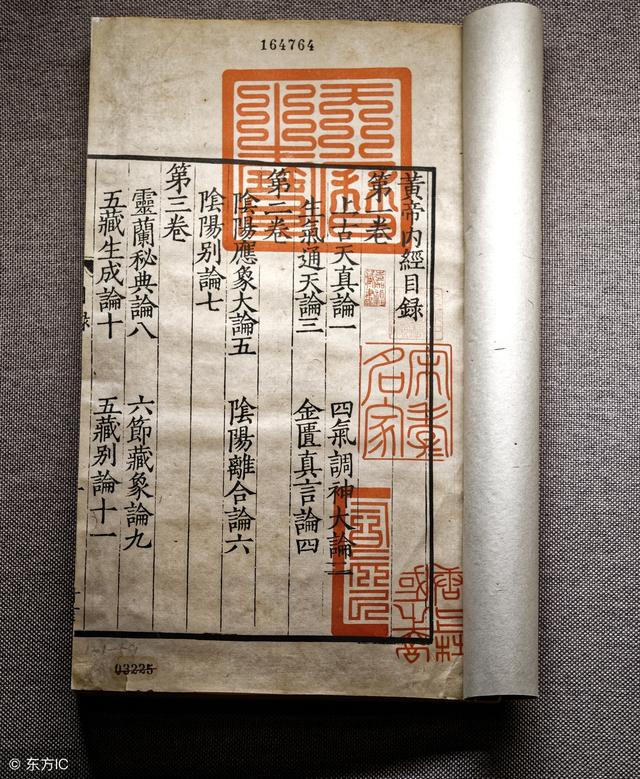 164764
黃帝內經目錄
第一卷
上古天真論一 四氣調神大論二
生氣通天論三 金匱真言論四
第二卷
陰陽應象大論五 陰陽離合論六
陰陽别論七
第三卷
靈蘭秘典論八 六節藏象論九
五藏生成論十 五藏别論十一
錄
03225
© 东方IC